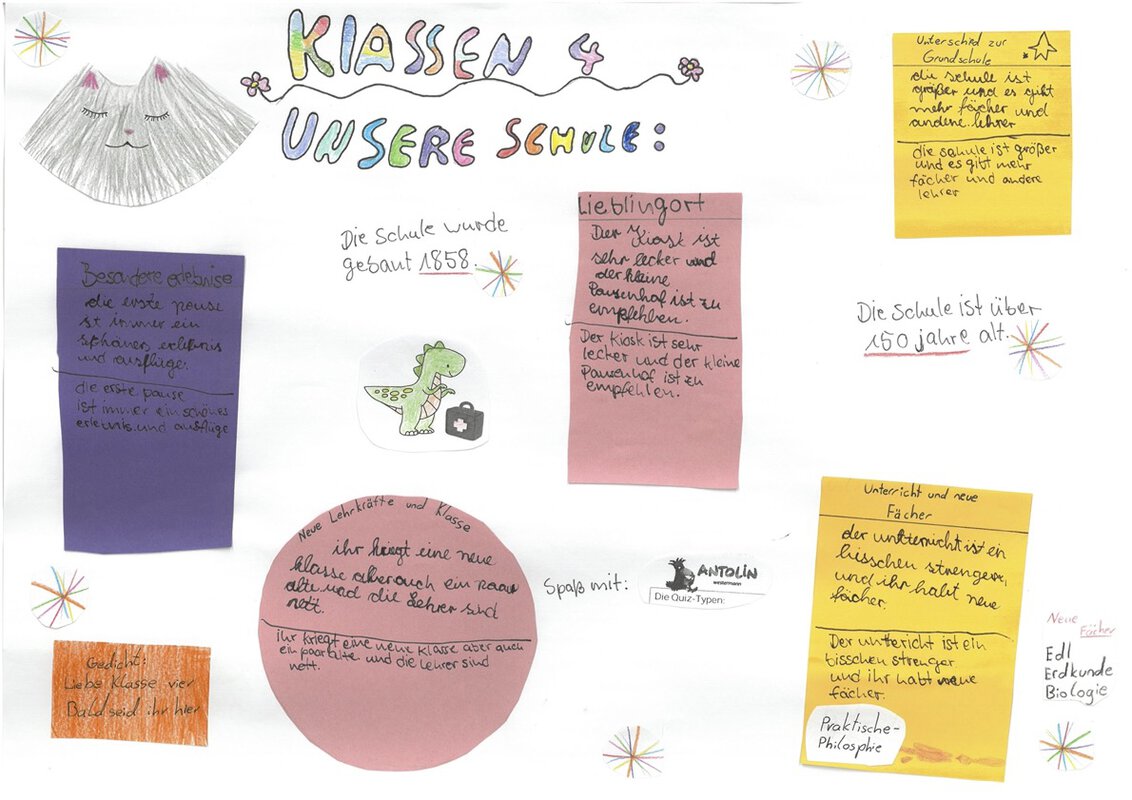 KlASSEN 4
UNSERE SCHULE:
Unterschied zur
Grundschule
die schule ist
größer und es gibt
mehr fächer und
andene lehrer
die schule ist größer
und es gibt mehr
fächer und andere
lehrer
Die Schule wurde
gebaut 1858.
Lieblingort
Der Kiosk ist
sehr lecker und
der kleine
Pausenhof ist zu
empfehlen.
Der Kiosk ist sehr
lecker und der kleine
Pausenhof ist zu
empfehlen.
Besondere erlebnise
die erste pause
st immer ein
schönes erlebnis
und ausflüge.
die erste pause
ist immer ein schönes
erlebnis und ausflüge
Die Schule ist über
150 jahre alt.
Neue Lehrkräfte und Klasse
ihr kriegt eine neue
klasse aber auch ein paar
alte und die Lehrer sind
nett.
Ihr kriegt eine neue Klasse aber auch
ein paar alte und die Lehrer sind
nett.
Spaß mit:
ANTOLIN
westermann
Die Quiz-Typen:
Unterricht und neue
Fächer
der unterricht ist ein
bisschen strenger,
und ihr habt neue
fächer.
Der unterricht ist ein
bisschen strenger
und ihr habt neue
fächer.
Praktische-
Philosphie
Neue
Fächer
Edl
Erdkunde
Biologie
Gedicht:
Liebe Klasse vier
Bald seid ihr hier